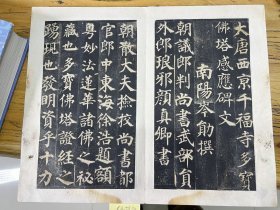 大唐西京千福寺多寶
佛塔感應碑文
南陽岑勛撰
朝議郎判尚書武部員
外郎琅邪顏真卿書
朝散大夫撿校尚書都
官郎中東海徐浩題額
粵妙法蓮華諸佛之祕
藏也多寶佛塔證經之
踴現也發明資乎十力